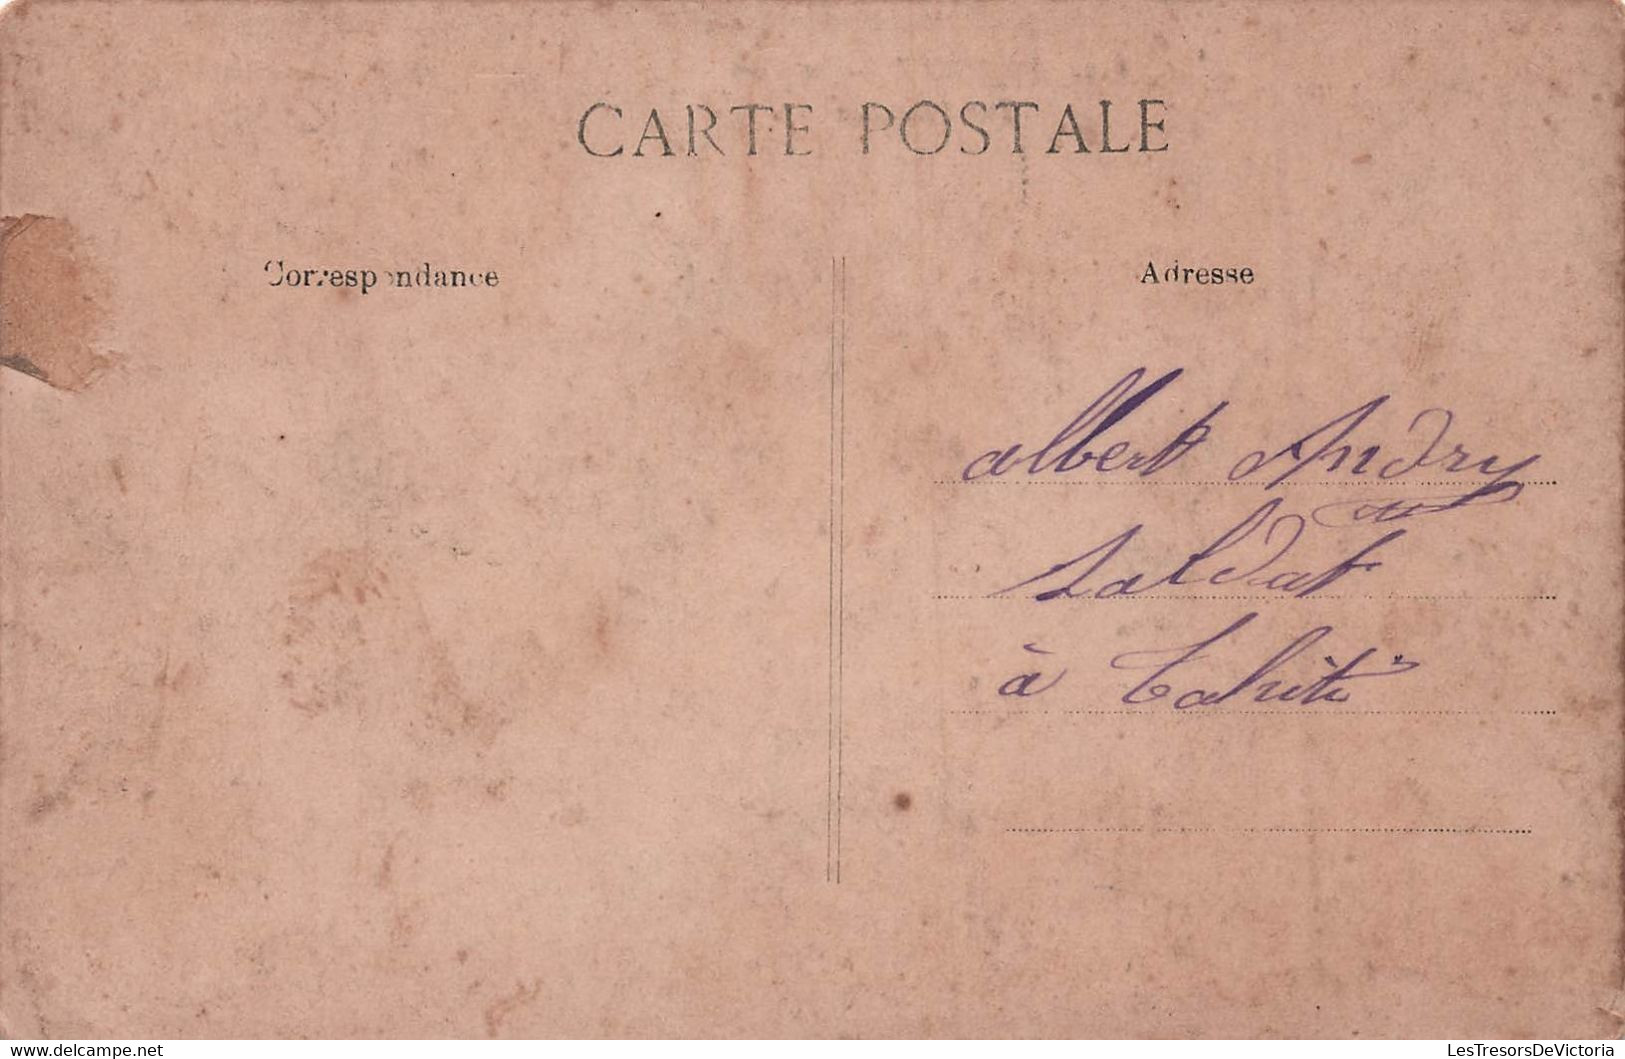 CARTE POSTALE
Correspondance
Adresse
Albert Andry
Soldat
à Tahiti
LesTresorsDeVictoria
Delcampe.net